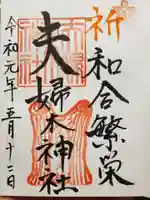 祈和合繁栄
夫婦木神社
令和元年五月十二日